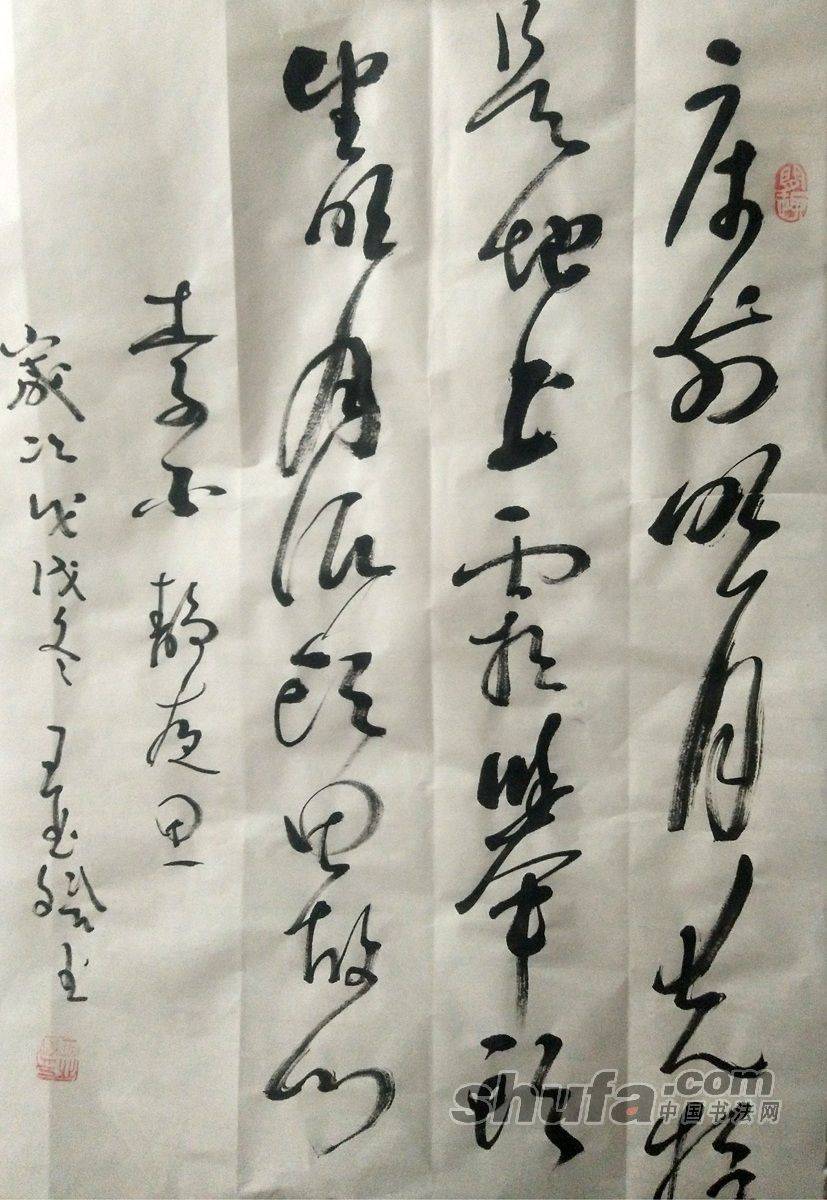 床前明月光疑
是地上霜舉頭
望明月低頭思故鄉
李白 靜夜思
歲次戊戌冬 王
shufa.com
中国书法网